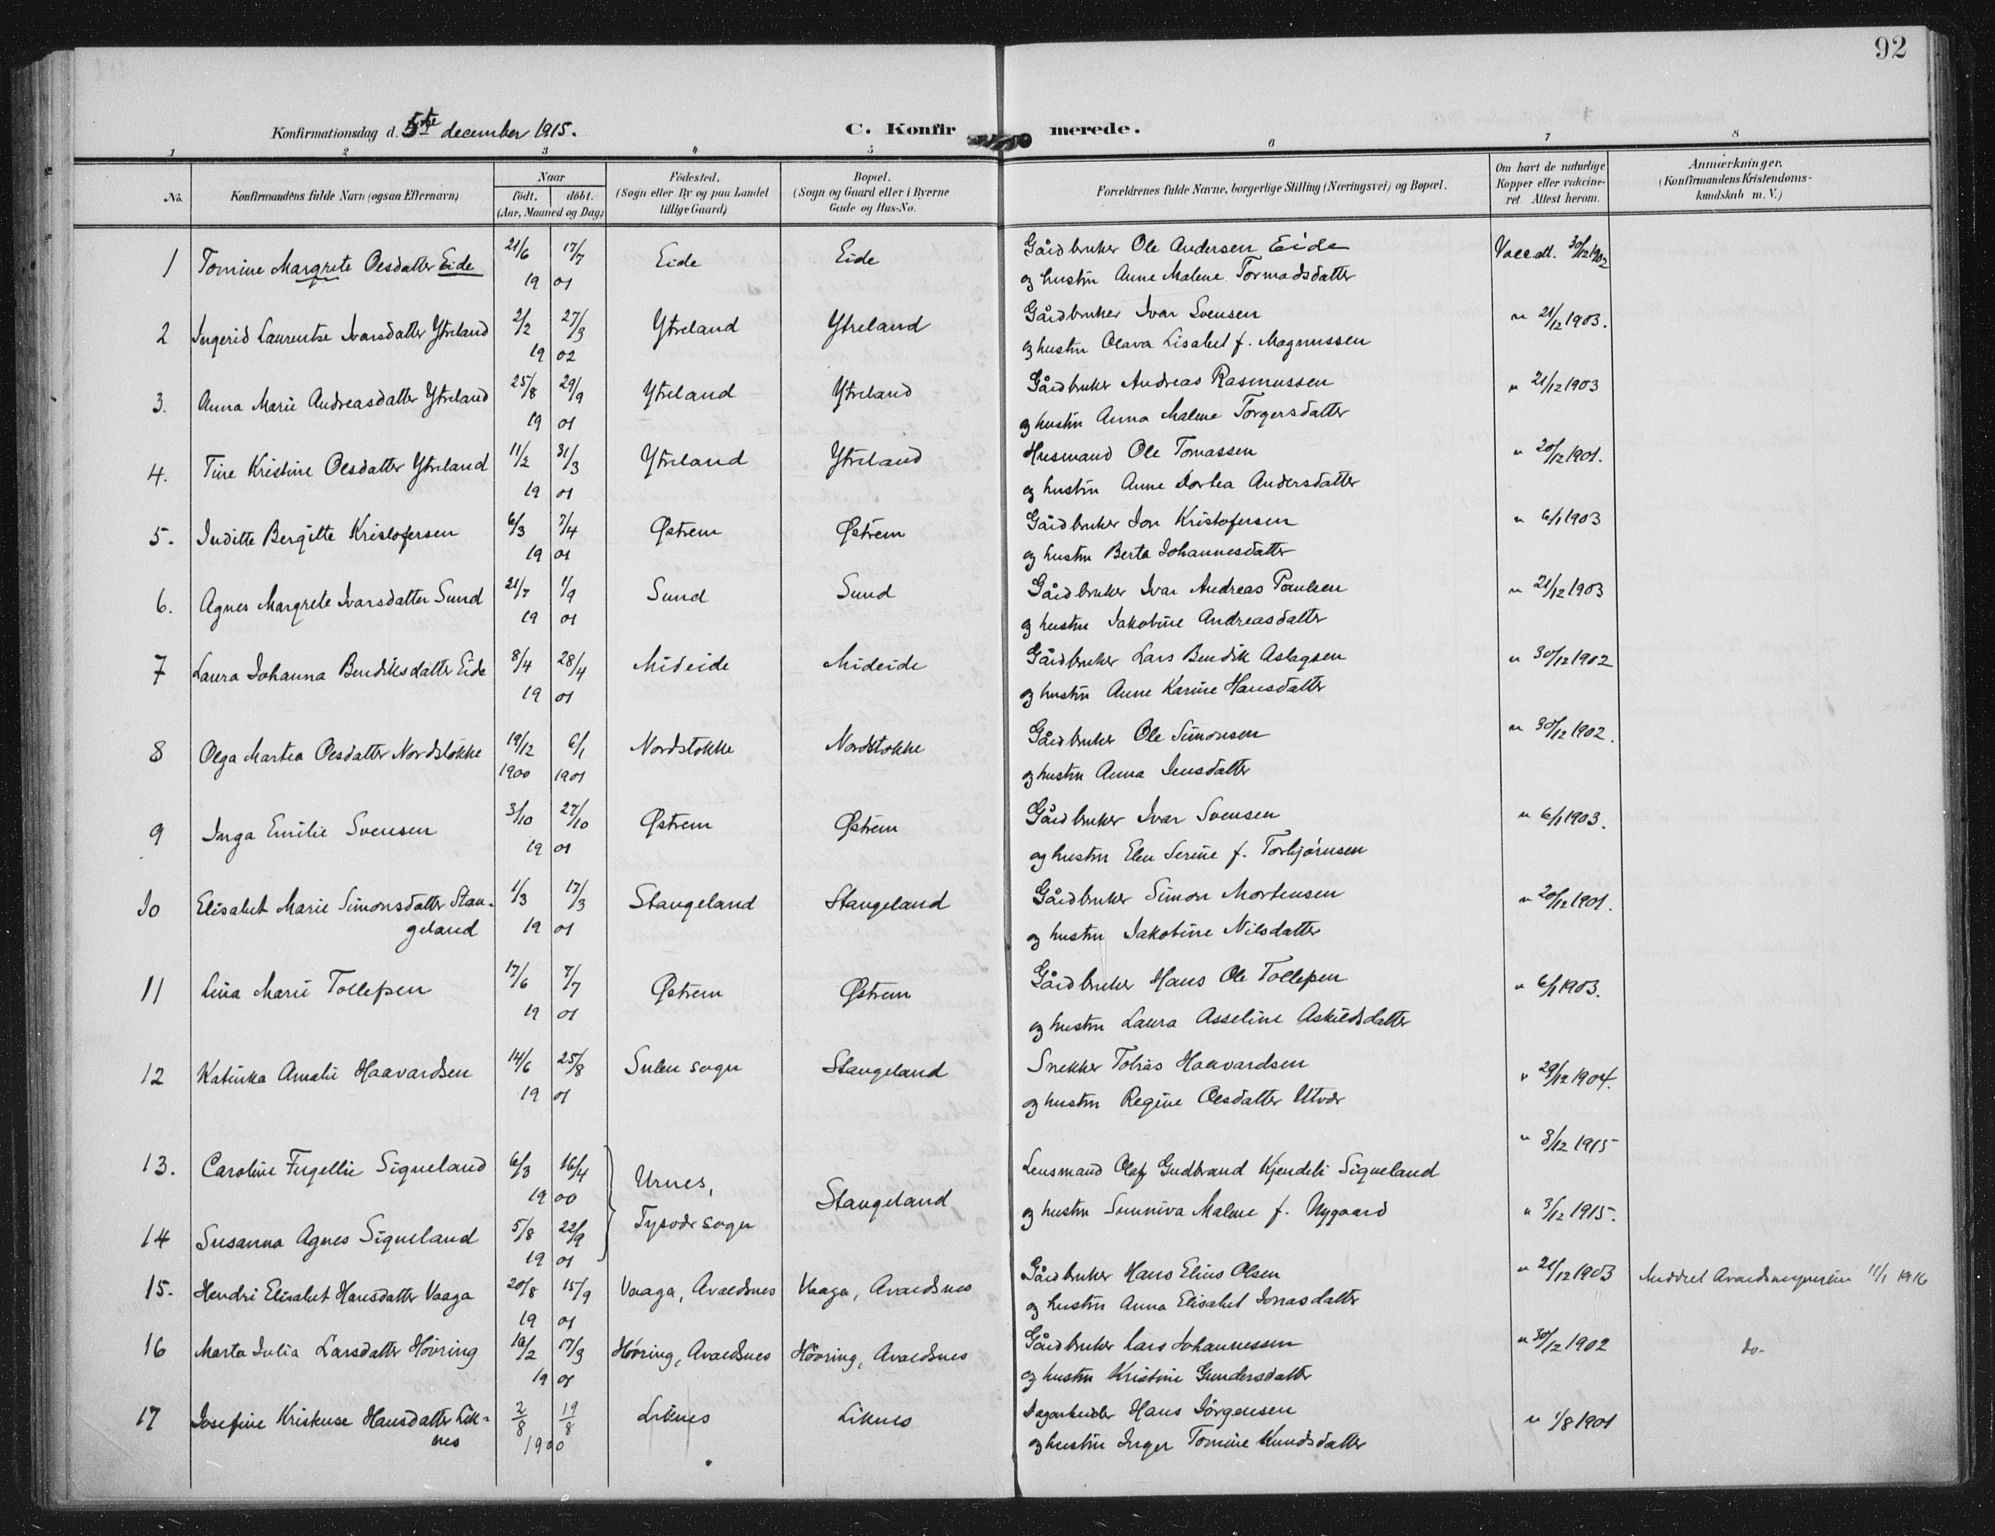 92
Konfirmationsdag d. 5te december 1915.
C. Konfirmerede.
1 2 3 4 5 6 7 8
No. Konfirmandens fulde Navn (ogsaa Efternavn) Naar født. døbt. (Aar, Maaned og Dag) Fødested. (Sogn eller By og paa Landet tillige Gaard) Bopæl. (Sogn og Gaard eller i Byerne Gade og Hus-No. Forældrenes fulde Navne, borgerlige Stilling (Næringsvei) og Bopæl. Om havt de naturlige Kopper eller vakcineret. Attest herom. Anmærkninger. (Konfirmandens Kristendomskundskab m. V.)
1 Tomine Margrete Olesdatter Eide 21/6 17/7 Eide Eide Gårdbruker Ole Andersen Eide Vacc att. 30/12 1902
19 01 og hustru Anne Malene Tormodsdatter
2 Ingerid Laurentse Ivarsdatter Ytreland 2/2 27/3 Ytreland Ytreland Gårdbruker Ivar Svensen " 21/12 1903.
19 02 og hustru Olava Lisabet f. Magnussen
3. Anna Marie Andreasdatter Ytreland 25/8 29/9 Ytreland Ytreland Gårdbruker Andreas Rasmussen " 21/12 1903
19 01 og hustru Anna Malene Torgersdatter
4. Tine Kristine Olesdatter Ytreland 11/2 31/3 Ytreland Ytreland Husmand Ole Tomassen " 20/12 1901.
19 01 og hustru Anne Dortea Andersdatter
5. Juditte Bergitte Kristofersen 6/3 7/4 Østrem Østrem Gårdbruker Jon Kristofersen " 6/1 1903
19 01 og hustru Berta Johannesdatter
6. Agnes Margrete Ivarsdatter Sund 21/7 1/9 Sund Sund Gårdbruker Ivar Andreas Paulsen " 21/12 1903
19 01 og hustru Jakobine Andreasdatter
7 Laura Johanna Bendiksdatter Eide 8/4 28/4 Mideide Mideide Gårdbruker Lars Bendik Aslagsen " 30/12 1902
19 01 og hustru Anne Karine Hansdatter
8 Olga Martea Olesdatter Nordstokke 19/12 6/1 Nordstokke Nordstokke Gårdbruker Ole Simonsen " 30/12 1902.
1900 1901 og hustru Anna Jensdatter
9 Inga Emilie Svensen 3/10 27/10 Østrem Østrem Gårdbruker Ivar Svensen " 6/1 1903.
19 01 og hustru Elen Serine f. Torbjørnsen
10 Elisabet Marie Simonsdatter Stan- 1/3 17/3 Stangeland Stangeland Gårdbruker Simon Mortensen " 20/12 1901.
geland 19 01 og hustru Jakobine Nilsdatter
11 Lina Marie Tollefsen 17/6 7/7 Østrem Østrem Gårdbruker Hans Ole Tollefsen " 6/1 1903.
19 01 og hustru Laura Asseline Askildsdatter
12 Katinka Amalie Haavardsen 14/6 25/8 Sulen sogn Stangeland Snekker Tobias Haavardsen " 29/12 1904.
19 01 og hustru Regine Olesdatter Utvær
13. Caroline Sigueland 6/3 16/4 Urnes, Stangeland Lensmand Olaf Gudbrand Kjendeli Sigueland " 3/12 1915
19 00
14 Susanna Agnes Sigueland 5/8 22/9 Tysvær sogn og hustru Sunniva Malene f. Nygaard " 3/12 1915.
19 01
15. Hendri Elisabet Hansdatter Vaaga 20/8 15/9 Vaaga, Avaldsnes Vaaga, Avaldsnes Gårdbruker Hans Elius Olsen " 21/12 1903 11/1 1916
19 01 og hustru Anna Elisabet Jonasdatter
16 Marta Julia Larsdatter Høvring 10/2 17/3 Høvring, Avaldsnes Høvring, Avaldsnes Gårdbruker Lars Johannessen " 30/12 1902 do-
19 01 og hustru Kristine Gundersdatter
17 Josefine Kristense Hansdatter Lik- 2/8 19/8 Liknes Liknes Dagarbeider Hans Jørgensen " 1/8 1901
nes 1900 og hustru Inger Tomine Knudsdatter